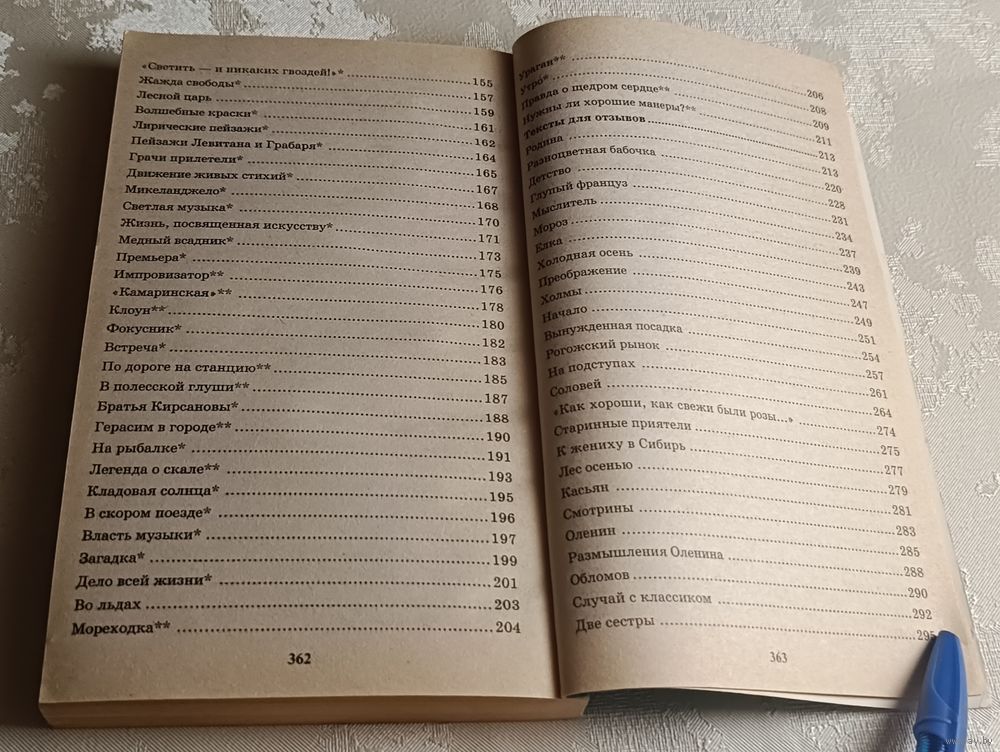 «Светить — и никаких гвоздей!»* ... 155
Жажда свободы* ... 157
Лесной царь ... 159
Волшебные краски* ... 161
Лирические пейзажи* ... 162
Пейзажи Левитана и Грабаря* ... 164
Грачи прилетели* ... 165
Движение живых стихий* ... 167
Микеланджело* ... 168
Светлая музыка* ... 170
Жизнь, посвященная искусству* ... 171
Медный всадник* ... 173
Премьера* ... 175
Импровизатор** ... 176
«Камаринская»** ... 178
Клоун** ... 180
Фокусник* ... 182
Встреча* ... 183
По дороге на станцию** ... 185
В полесской глуши** ... 187
Братья Кирсановы* ... 188
Герасим в городе** ... 190
На рыбалке* ... 191
Легенда о скале** ... 193
Кладовая солнца* ... 195
В скором поезде* ... 196
Власть музыки* ... 197
Загадка* ... 199
Дело всей жизни* ... 201
Во льдах ... 203
Мореходка** ... 204
362
Ураган** ... 206
Утро* ... 208
Правда о щедром сердце** ... 209
Нужны ли хорошие манеры?** ... 211
Тексты для отзывов ... 213
Родина ... 213
Разноцветная бабочка ... 220
Детство ... 228
Глупый француз ... 231
Мыслитель ... 234
Мороз ... 237
Елка ... 239
Холодная осень ... 243
Преображение ... 247
Холмы ... 249
Начало ... 251
Вынужденная посадка ... 254
Рогожский рынок ... 257
На подступах ... 261
Соловей ... 264
«Как хороши, как свежи были розы...» ... 274
Старинные приятели ... 275
К жениху в Сибирь ... 277
Лес осенью ... 279
Касьян ... 281
Смотрины ... 283
Оленин ... 285
Размышления Оленина ... 288
Обломов ... 290
Случай с классиком ... 292
Две сестры ... 295
363
www.av.by